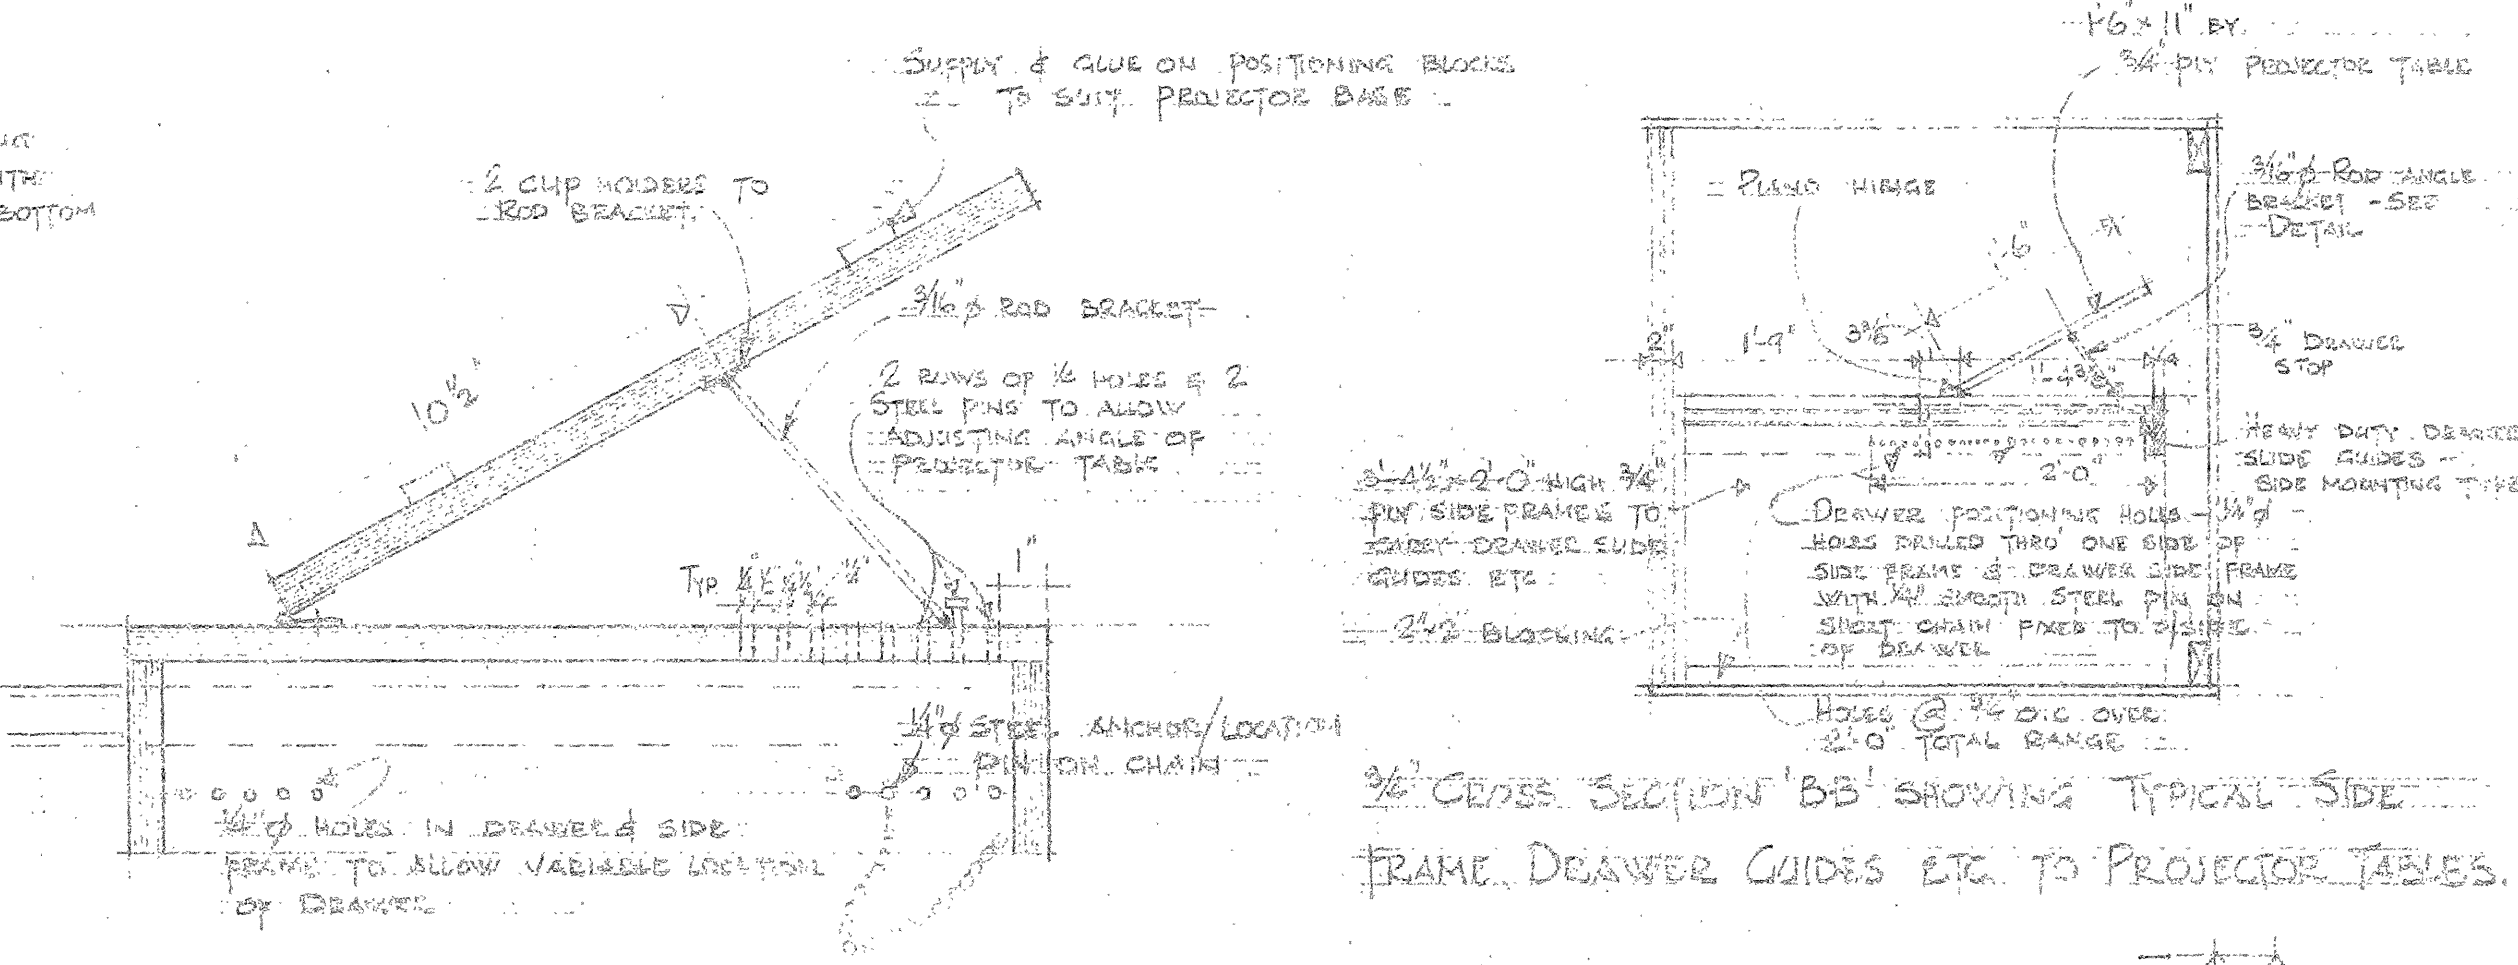 BOTTOM
SUPPLY & GLUE ON POSITIONING BLOCKS
TO SUIT PROJECTOR BASE
2 CLIP HOLDERS TO
ROD BRACKET.
3/16"φ ROD BRACKET
10 1/2"
2 ROWS OF 1/4 HOLES & 2
STEEL PINS TO ALLOW
ADJUSTING ANGLE OF
PROJECTOR TABLE
TYP.
1"
1/4"φ STEEL ANCHOR/LOCATION
PIN ON CHAIN
1/4"φ HOLES IN DRAWER & SIDE
FRAME TO ALLOW VARIABLE LOCATION
OF DRAWER
1'-6" x 11" BY
3/4" PLY PROJECTOR TABLE
PIANO HINGE
3/16"φ ROD ANGLE
BRACKET - SEE
DETAIL
6"
2"
1'-9"
3/4" DRAWER
STOP
HEAVY DUTY DRAWER
SLIDE GUIDES -
SIDE MOUNTING TYPE
2'-0"
3'-4 1/2" x 2'-0" HIGH 3/4"
PLY SIDE FRAMES TO
CARRY DRAWER SLIDE
GUIDES ETC
2"x2" BLOCKING
DRAWER POSITIONING HOLES - 1/4"φ
HOLES DRILLED THRO' ONE SIDE OF
SIDE FRAME & DRAWER SIDE FRAME
WITH 1/4" SMOOTH STEEL PIN ON
SHORT CHAIN FIXED TO
OF DRAWER
HOLES @ O.C. OVER
2'-0" TOTAL RANGE
3/4" CROSS SECTION 'BB' SHOWING TYPICAL SIDE
FRAME DRAWER GUIDES ETC TO PROJECTOR TABLES.